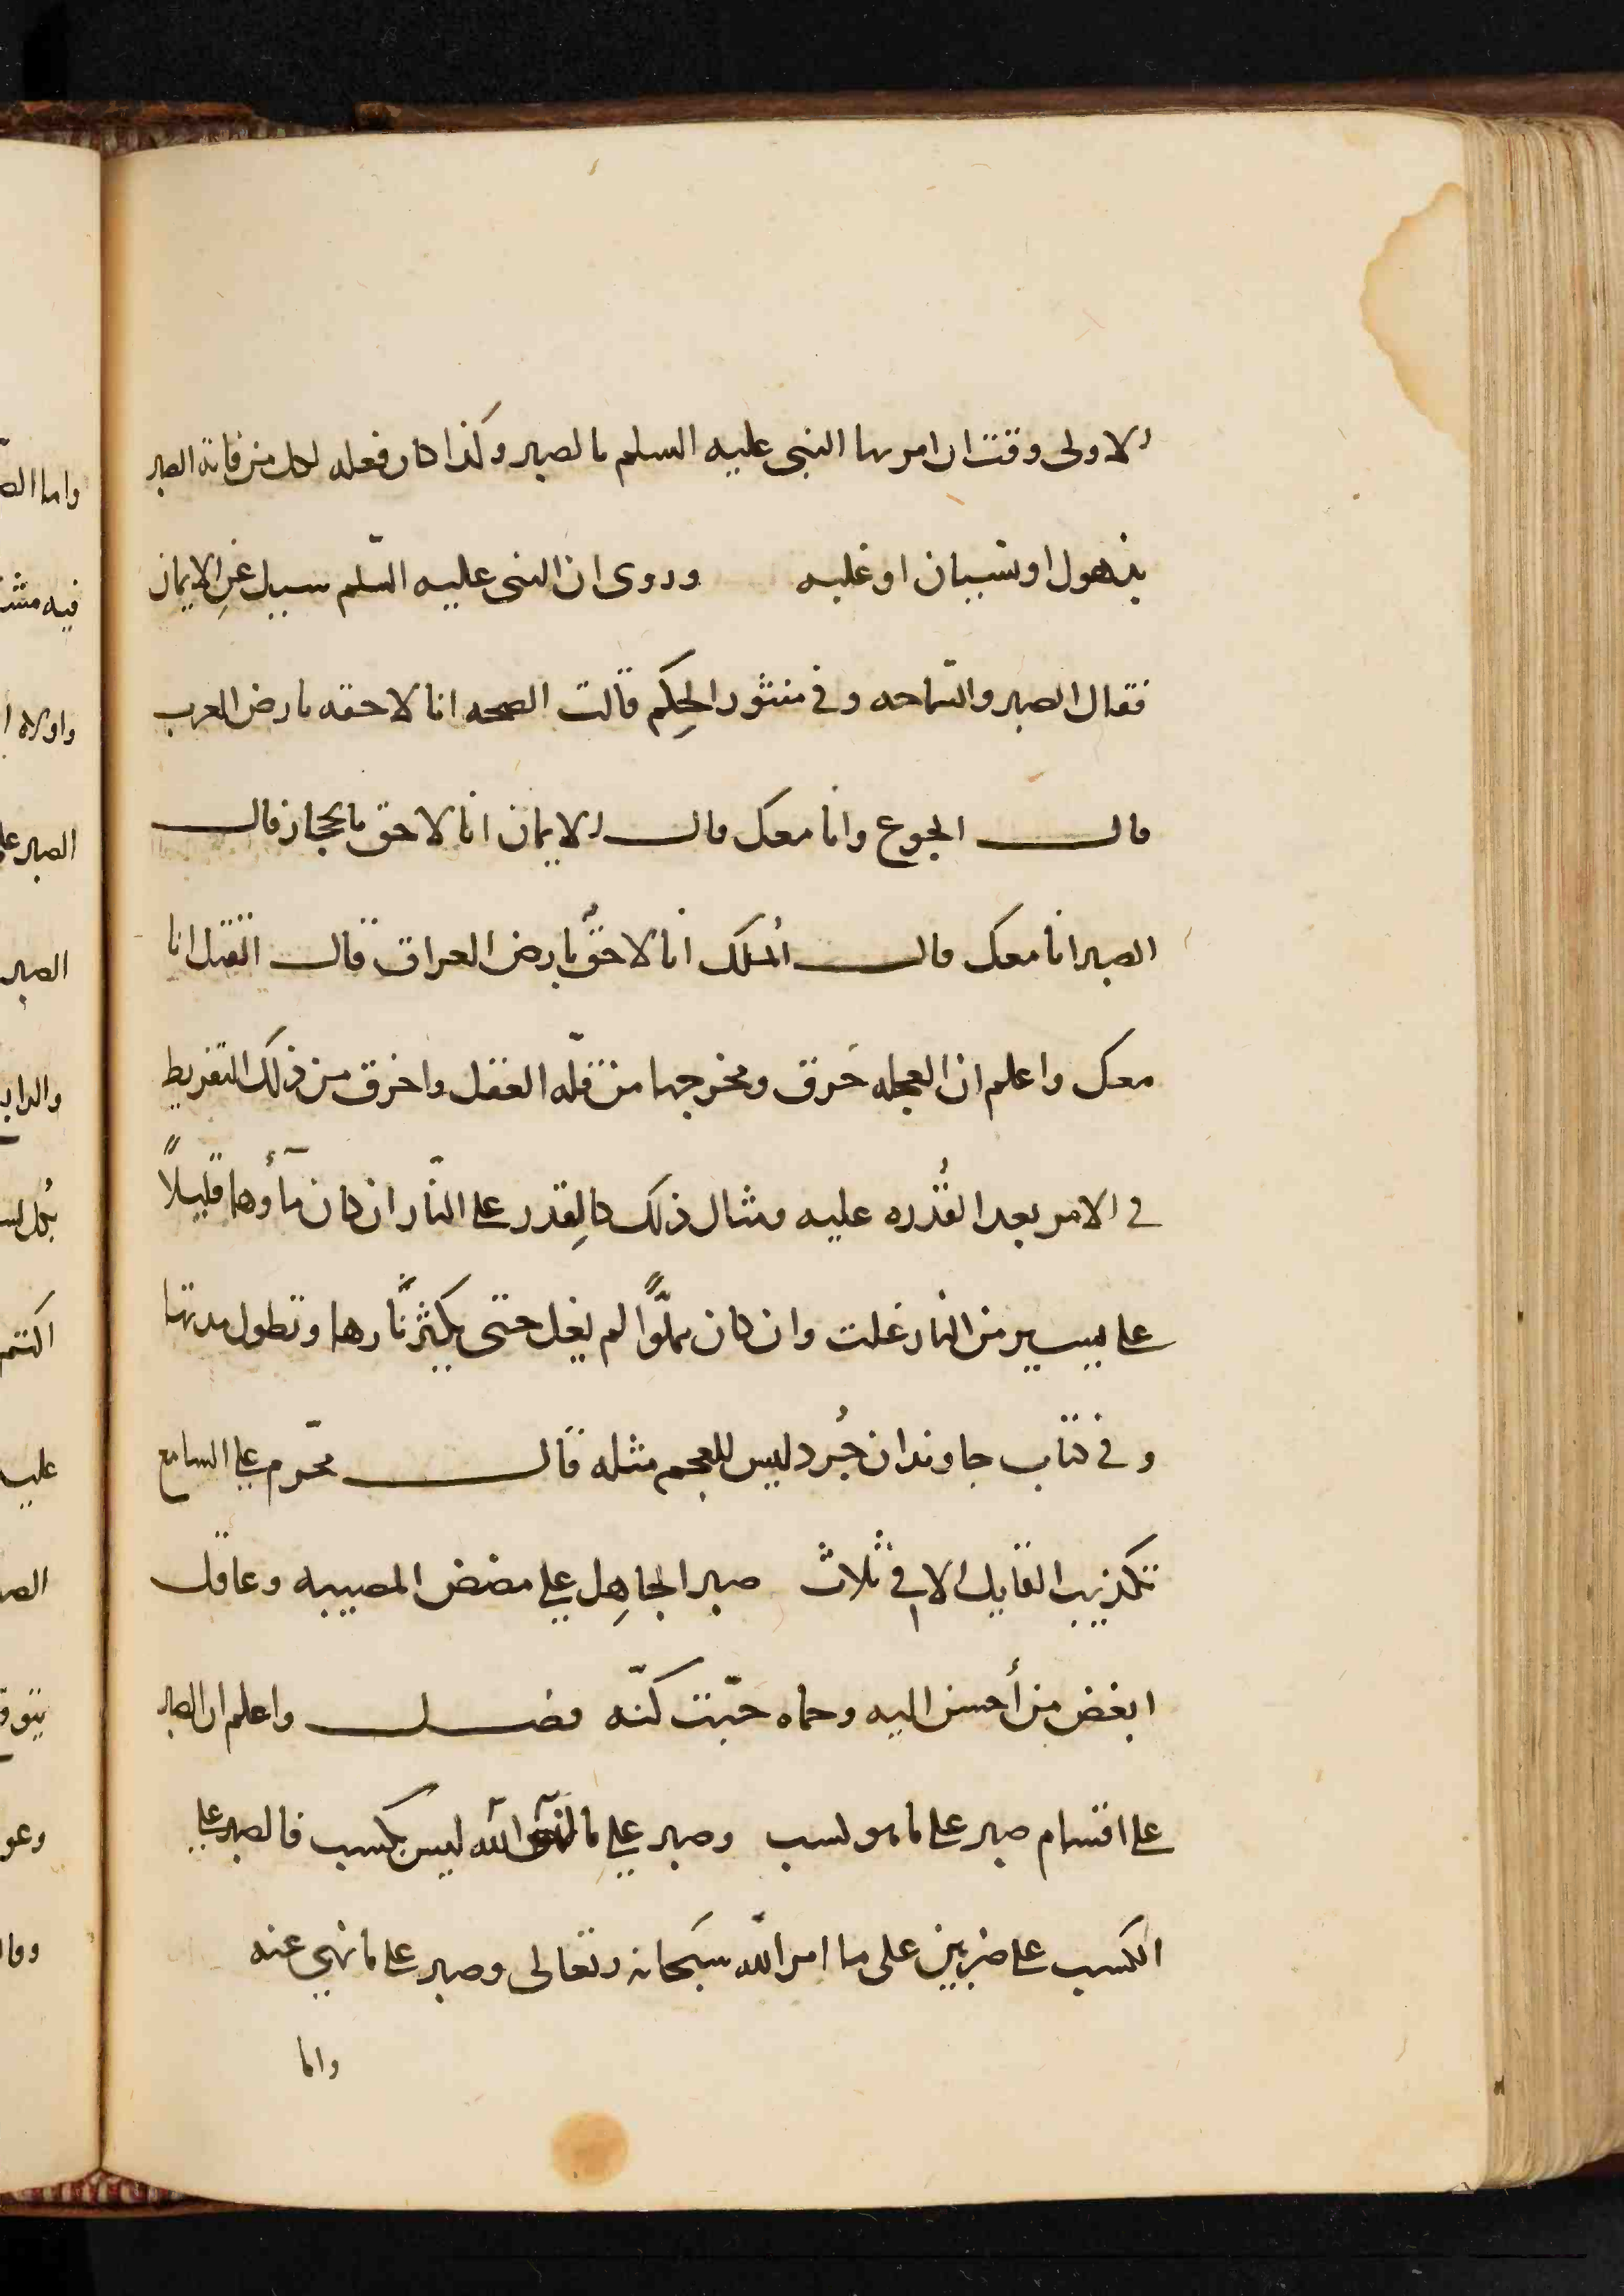 الاولى وقت ان امرها النبى عليه السلم بالصبر وكذا كان فعله لكل من فاته الصبر
بذهول او نسيان او غلبه وروى ان النبى عليه السّلم سيل عنِ الايمان
فقال الصبر والسّماحه وفي منثور الحِكم قالت الصحه انا لاحقه بارض العرب
قال الجوع وانا معك قال الايمان انا لاحق بالحجاز قال
الصبر انا معك قال المُلك انا لاحقٌ بارض العراق قال القتل انا
معك واعلم ان العجله خَرق ومخرجها من قلّه العقل واخرق من ذلك التفريط
في الامر بعد القُدره عليه ومثال ذلك كالقِدر على النّار ان كان مآؤها قليلاً
على يسير من النار غلت وان كان مملوًّا لم يغل حتى يكثر نارها وتطول مدتها
وفي كتاب جاوندان خُرد ليس للعجم مثله قال محّرم على السامع
تكذيب القايل الا في ثلاث صبر الجاهِل على مضض المصيبه وعاقل
ابغض من أحسن اليه وحماه حبّت كنّه فصل واعلم ان الصبر
على اقسام صبر على ما هو كسب وصبر على ما ليس بكسب فالصبر على
الكسب على ضربين على ما امر اللّه سبحانه وتعالى وصبر على ما نهى عنه
واما